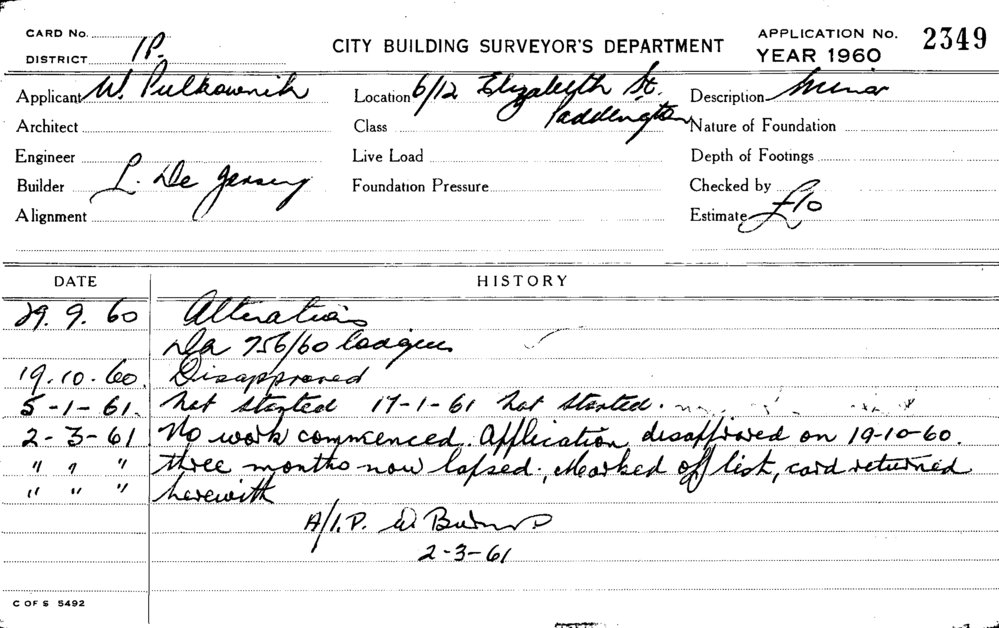 CARD No.
DISTRICT 1P.
CITY BUILDING SURVEYOR'S DEPARTMENT
APPLICATION No. 2349
YEAR 1960
Applicant W. Pulkownik
Location 6/12 Elyzabeth St. Paddington
Description Minor
Architect
Class
Nature of Foundation
Engineer
Live Load
Depth of Footings
Builder L. De Jersey
Foundation Pressure
Checked by
Alignment
Estimate £10
DATE HISTORY
29. 9. 60 Alterations
Da 756/60 lodgers
19.10.60. Disapproved
5-1-61. Not started 17-1-61 Not started.
2-3-61 No work commenced. Application disapproved on 19-10-60.
" " " three months now lapsed. Marked off list, card returned
" " " herewith
A/I.P. W. 
2-3-61
C OF S 5492